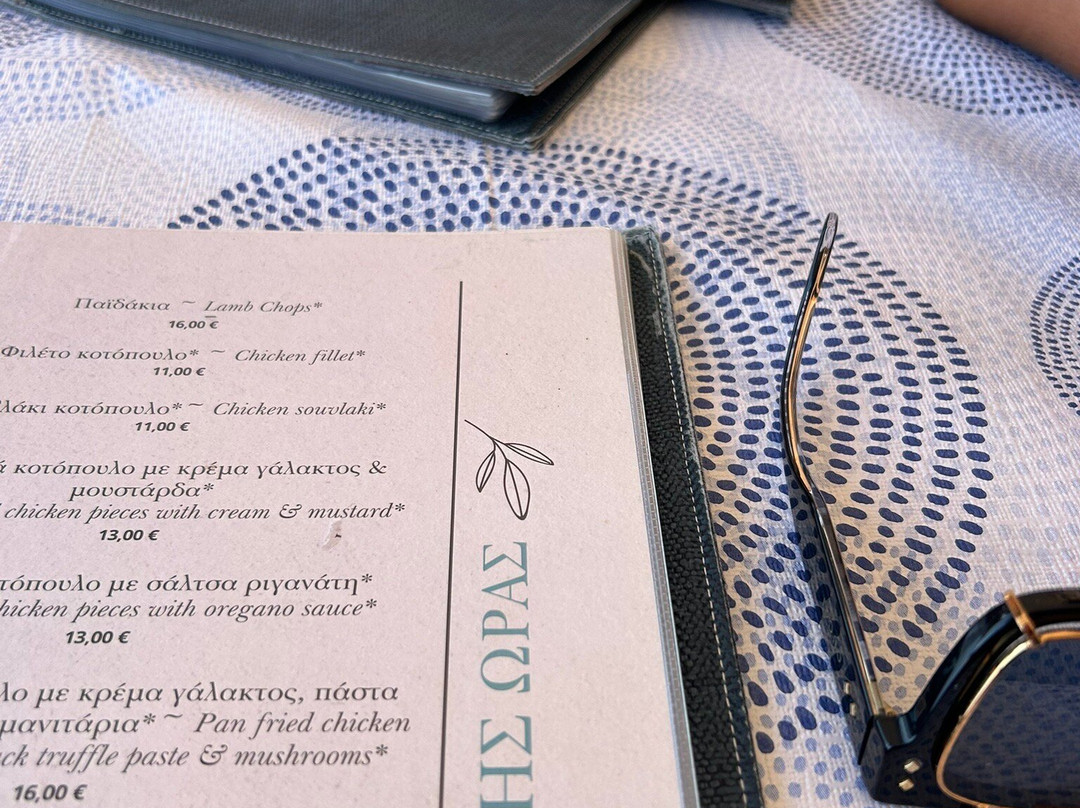 Παϊδάκια ~ Lamb Chops*
16,00 €
Φιλέτο κοτόπουλο* ~ Chicken fillet*
11,00 €
λάκι κοτόπουλο* ~ Chicken souvlaki*
11,00 €
ά κοτόπουλο με κρέμα γάλακτος &
μουστάρδα*
chicken pieces with cream & mustard*
13,00 €
τόπουλο με σάλτσα ριγανάτη*
hicken pieces with oregano sauce*
13,00 €
λο με κρέμα γάλακτος, πάστα
μανιτάρια* ~ Pan fried chicken
ck truffle paste & mushrooms*
16,00 €
ΗΣ ΩΡΑΣ